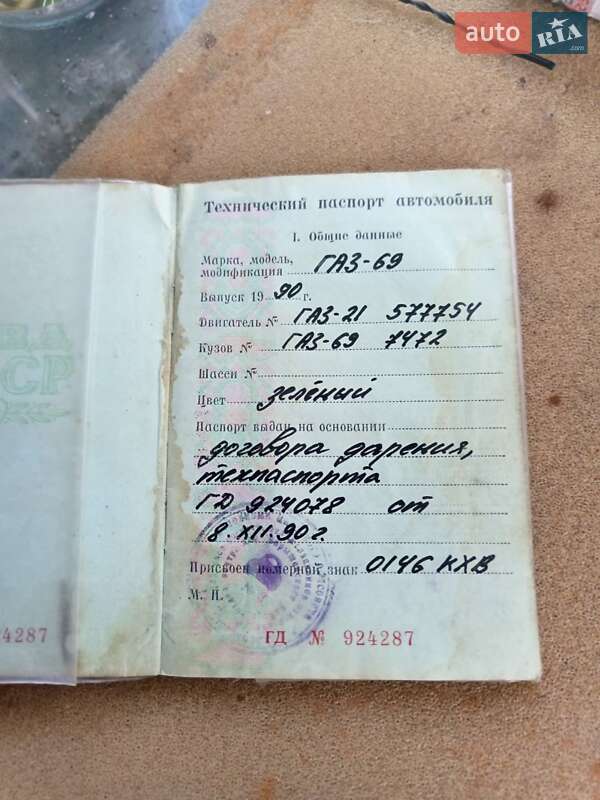 auto RIA .com
Технический паспорт автомобиля
I. Общие данные
Марка, модель,
модификация ГАЗ-69
Выпуск 1990 г.
Двигатель № ГАЗ-21 577754
Кузов № ГАЗ-69 7472
Шасси №
Цвет зелёный
Паспорт выдан на основании
договора дарения,
техпаспорта
ГД 924078 от
18.XII.90 г.
Присвоен номерной знак 0146 КХВ
М. П.
ГД № 924287
4287